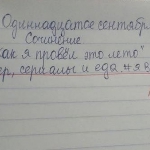 Одиннадцатое сентябр
Сочинение
как я провёл это лето"
ер, сериалы и еда